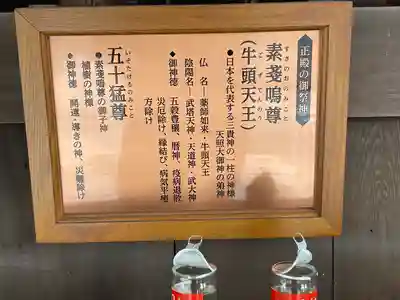 正殿の御祭神
すさのおのみこと
素戔嗚尊
ごずてんのう
(牛頭天王)
●日本を代表する三貴神の一柱の神様
天照大御神の弟神
仏 名―薬師如来・牛頭天王
陰陽名―武塔天神・天道神・武大神
●御神徳 五穀豊穣、暦神、疫病退散
災厄除け、縁結び、病気平癒
方除け
いそたけるのみこと
五十猛尊
●素戔嗚尊の御子神
植樹の神様
●御神徳 開運・導きの神、災難除け